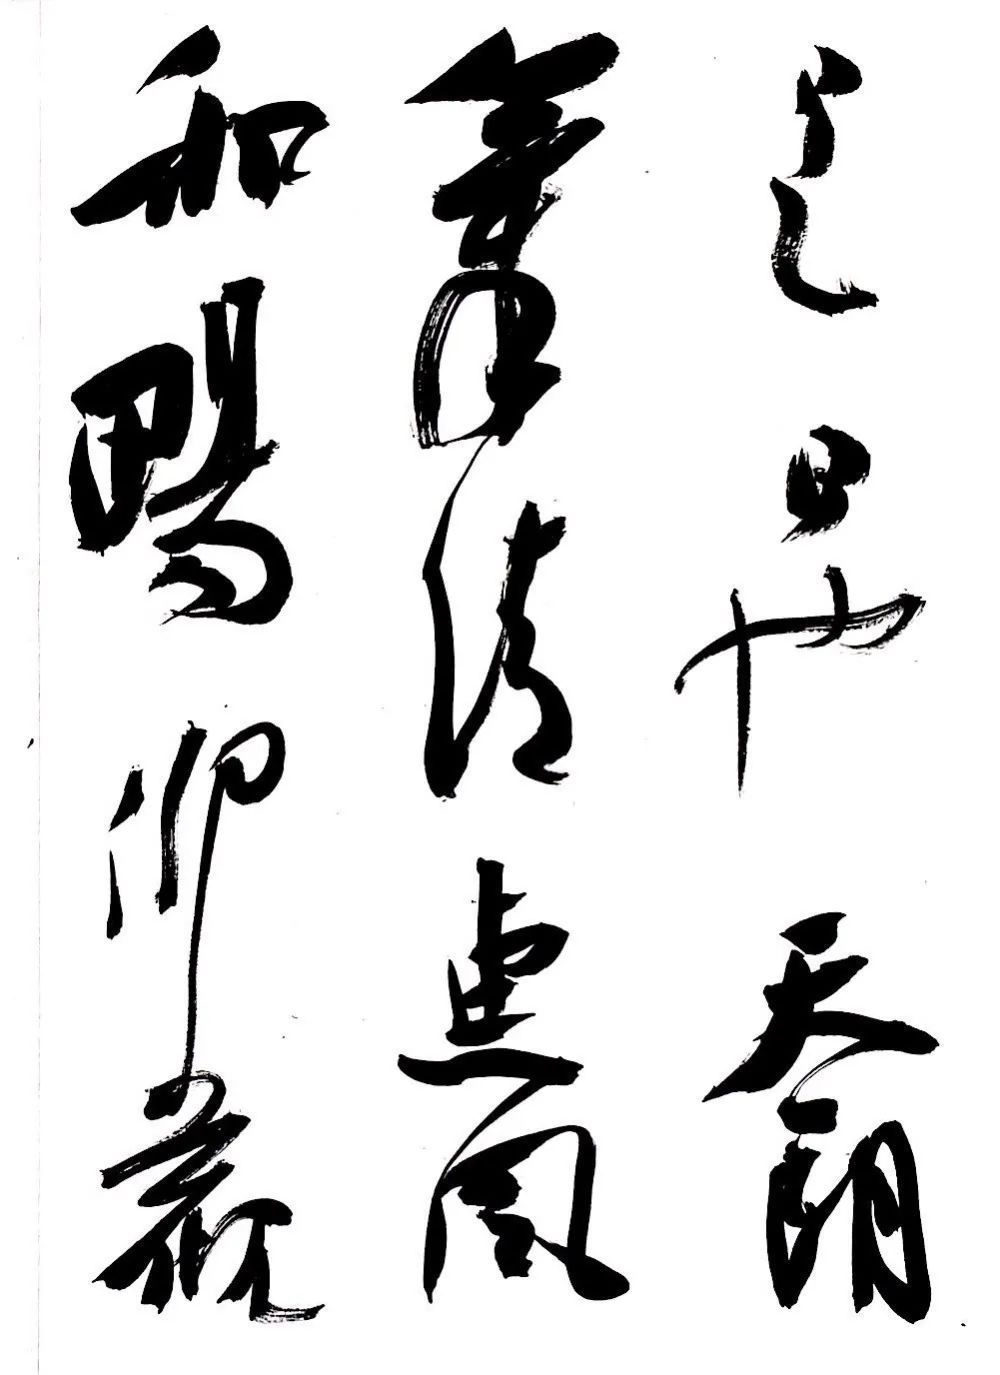 是日也天朗
氣清惠風
和暢仰觀